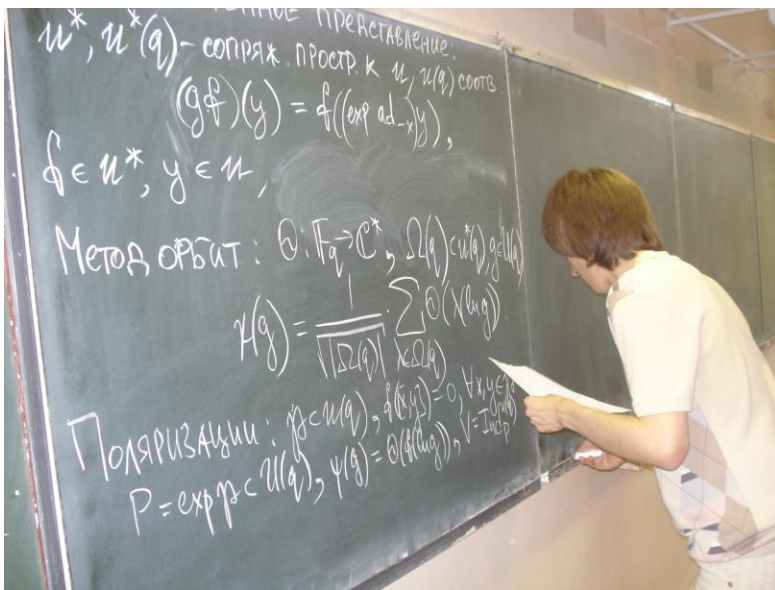 ПРЕДСТАВЛЕНИЕ:
𝔲*, 𝔲*(q) – СОПРЯЖ. ПРОСТР. К 𝔲, 𝔲(q) СООТВ.
(gf)(y) = f((exp ad₋ₓ)y),
f ∈ 𝔲*, y ∈ 𝔲,
МЕТОД ОРБИТ: Θ: 𝔽q → ℂ*, Ω(q) ⊂ 𝔲*(q), g ∈ U(q)
χ(g) = 1/√|Ω(q)| · ∑ λ∈Ω(q) Θ(λ(ln g)).
ПОЛЯРИЗАЦИИ: 𝔭 ⊂ 𝔲(q), f([x,y]) = 0, ∀x,y ∈ 𝔭
P = exp 𝔭 ⊂ U(q), ψ(g) = Θ(f(ln g)), V = Ind